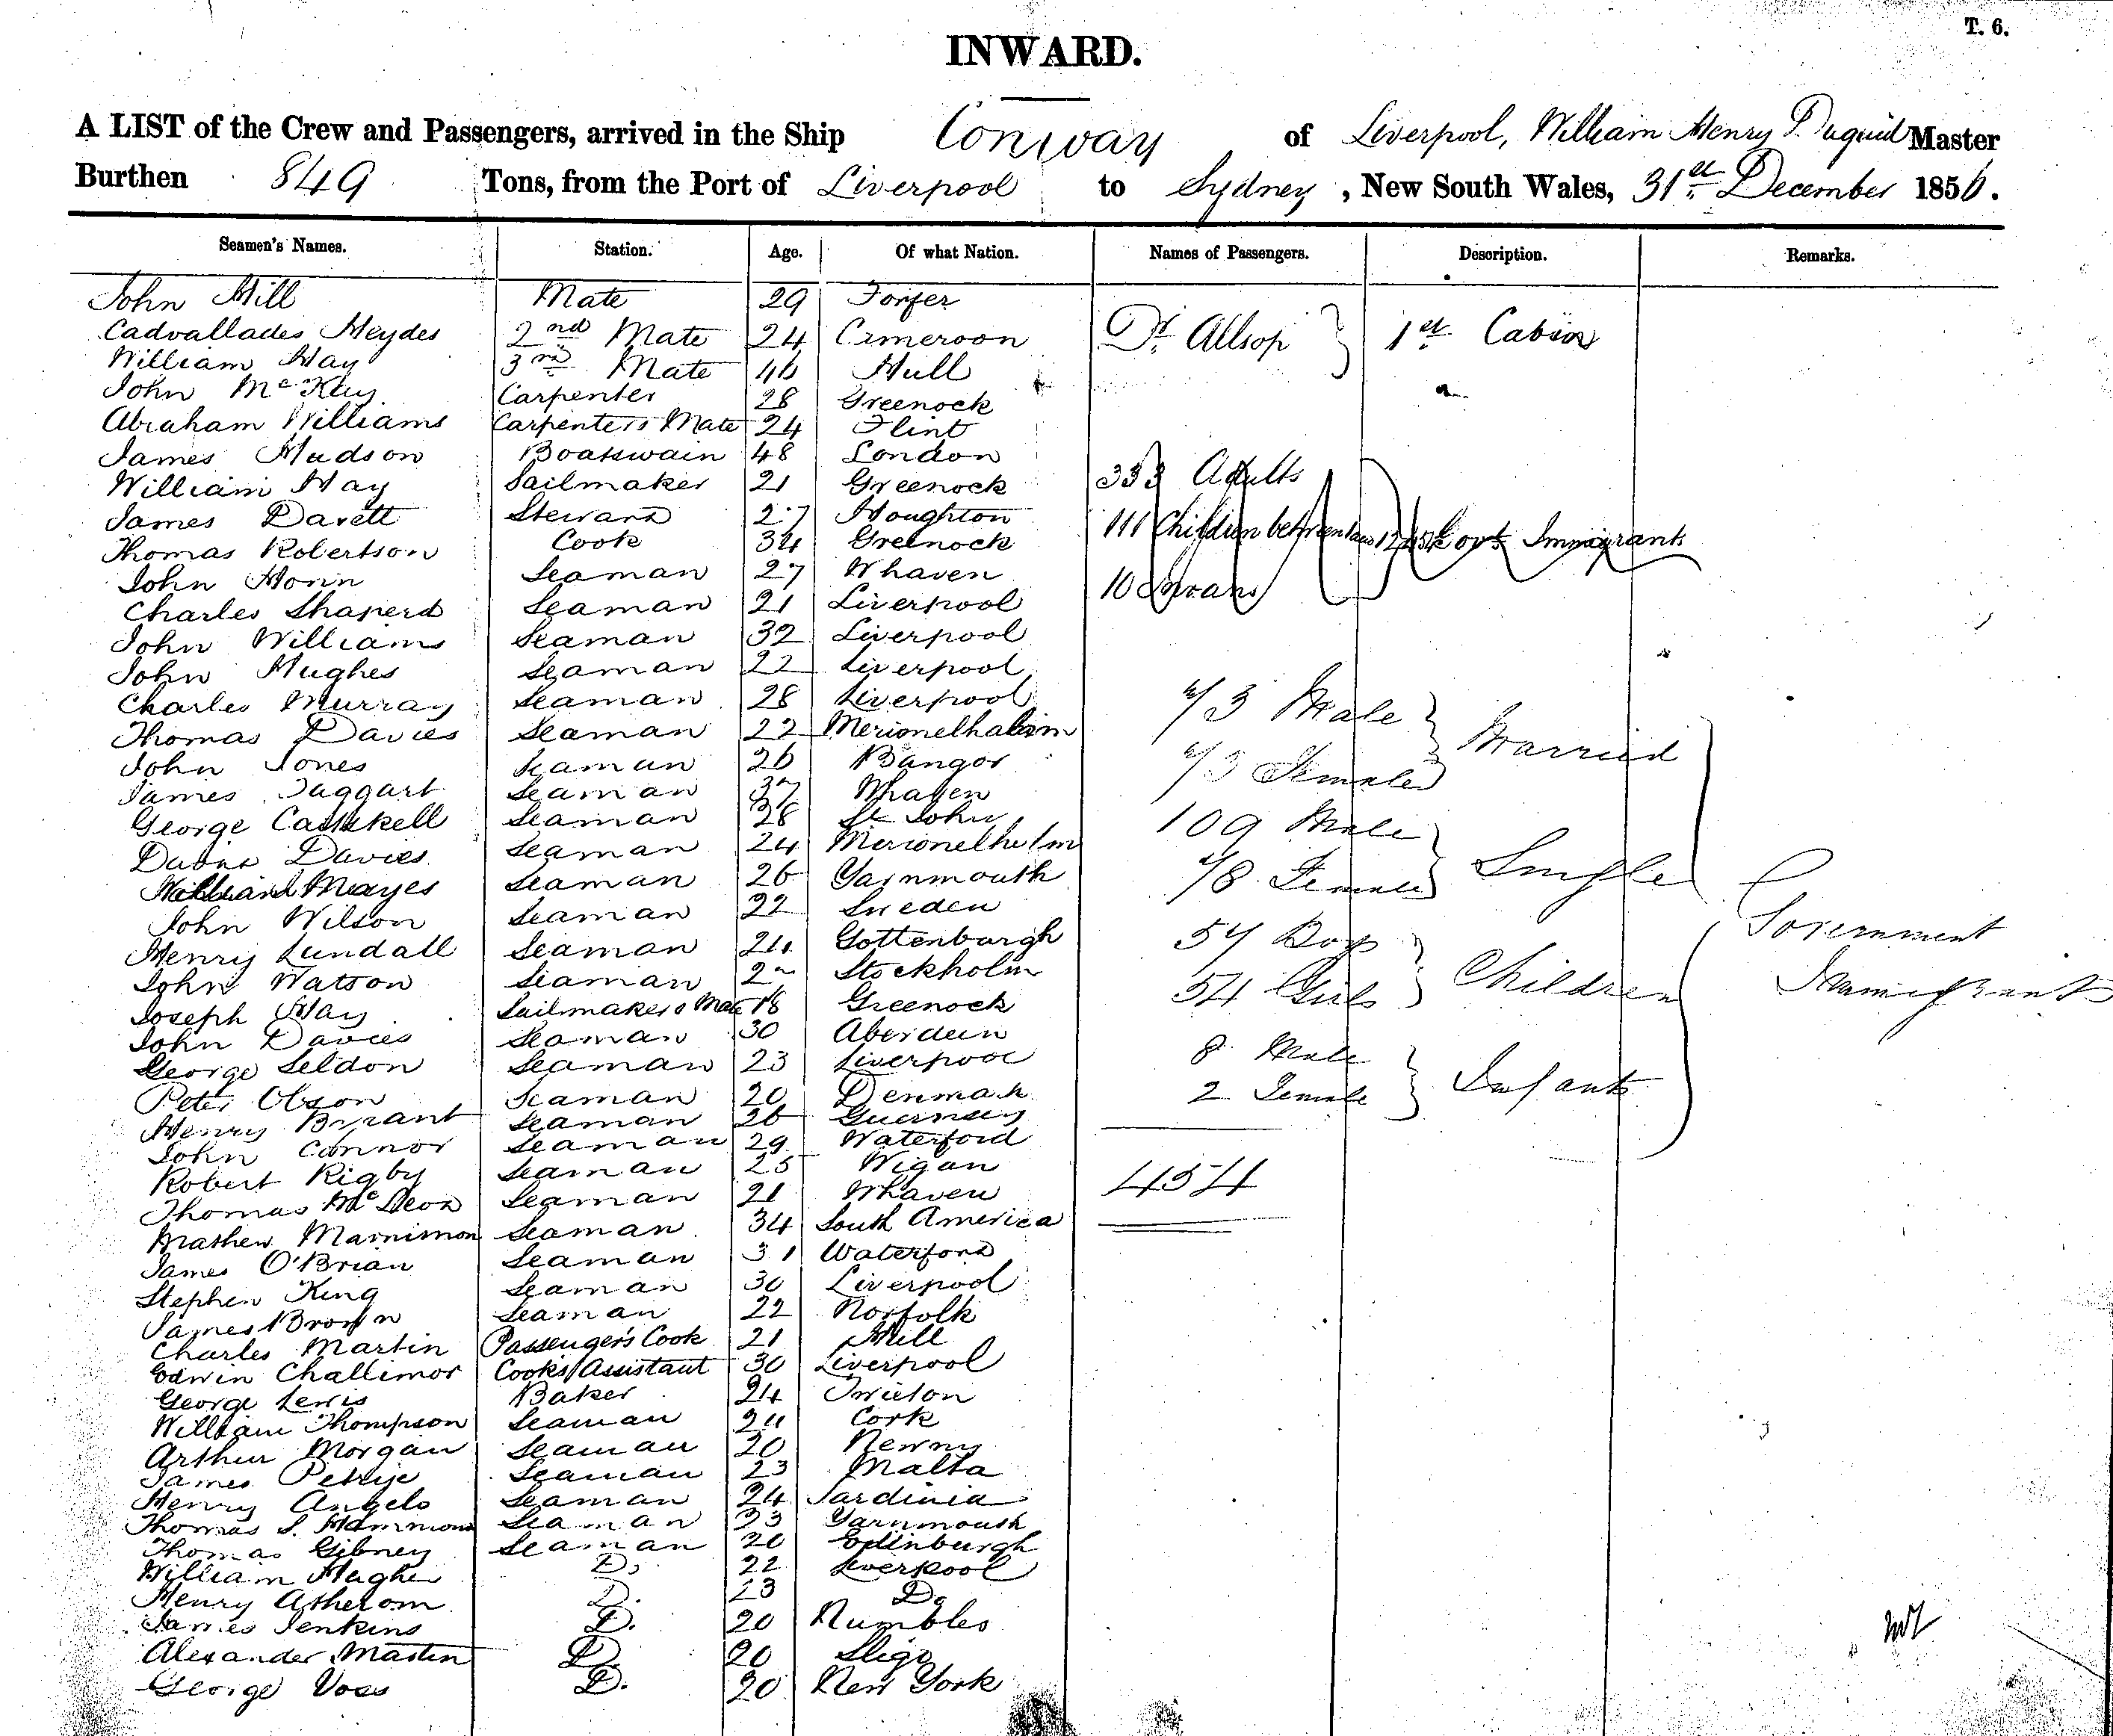 T. 6.
INWARD.
A LIST of the Crew and Passengers, arrived in the Ship Conway of Liverpool, William Henry Duguid Master
Burthen 849 Tons, from the Port of Liverpool to Sydney, New South Wales, 31st December 1856.
Seamen's Names. Station. Age. Of what Nation. Names of Passengers. Description. Remarks.
John Mill Mate 29 Forfer
Cadvallades Heydes 2nd Mate 24 Cimeroon Dr. Allsop 1st Cabin
William Hay 3rd Mate 46 Hull
John McKay Carpenter 28 Greenock
Abraham Williams Carpenters Mate 24 Flint
James Hudson Boatswain 48 London
William Hay Sailmaker 21 Greenock 333 Adults
James Davett Steward 27 Houghton
Thomas Robertson Cook 34 Greenock 111 Children between Immigrants
John Honn Seaman 27 Whaven
Charles Shaperd Seaman 21 Liverpool 10
John Williams Seaman 32 Liverpool
John Hughes Seaman 22 Liverpool
Charles Murray Seaman 28 Liverpool 73 Male
Thomas Davies Seaman 22 Married
John Jones Seaman 26 Bangor 73 Females
James Taggart Seaman 37 Whaven
George Seaman 28 St John 109 Male
Davies Seaman 24 Single
William Mayes Seaman 26 Yarnmouth 78 Females
John Wilson Seaman 22 Sweden
Henry Lundall Seaman 24 Gottenburgh 57 Boys Government
John Watson Seaman Stockholm Children
Joseph Hay Sailmakers Mate 18 Greenock 54 Girls Immigrants
John Davies Seaman 30 Aberdeen
George Seldon Seaman 23 Liverpool 8 Male
Peter Olsson Seaman 20 Denmark Infants
Henry Bryant Seaman 26 Guernsey 2 Female
John Connor Seaman 29 Waterford
Robert Rigby Seaman 25 Wigan 454
Thomas McLeod Seaman 21 Whaven
Mathew Marnimon Seaman 34 South America
James O'Brian Seaman 31 Waterford
Stephen King Seaman 30 Liverpool
James Brown Seaman 22 Norfolk
Charles Martin Passengers Cook 21 Hull
Edwin Challimor Cooks Assistant 30 Liverpool
George Lewis Baker 24
William Thompson Seaman 24 Cork
Arthur Morgan Seaman 20 Newry
James Petrije Seaman 23 Malta
Henry Angelo Seaman 24 Sardinia
Thomas S. Hammond Seaman 23 Yarnmouth
Thomas Gibney Seaman 20 Edinburgh
William Hughes Do. 22 Liverpool
Henry Atherom Do. 23 Do
James Jenkins Do. 20 Numbles
Alexander Martin Do. 20 Sligo
George Voss Do. 20 New York